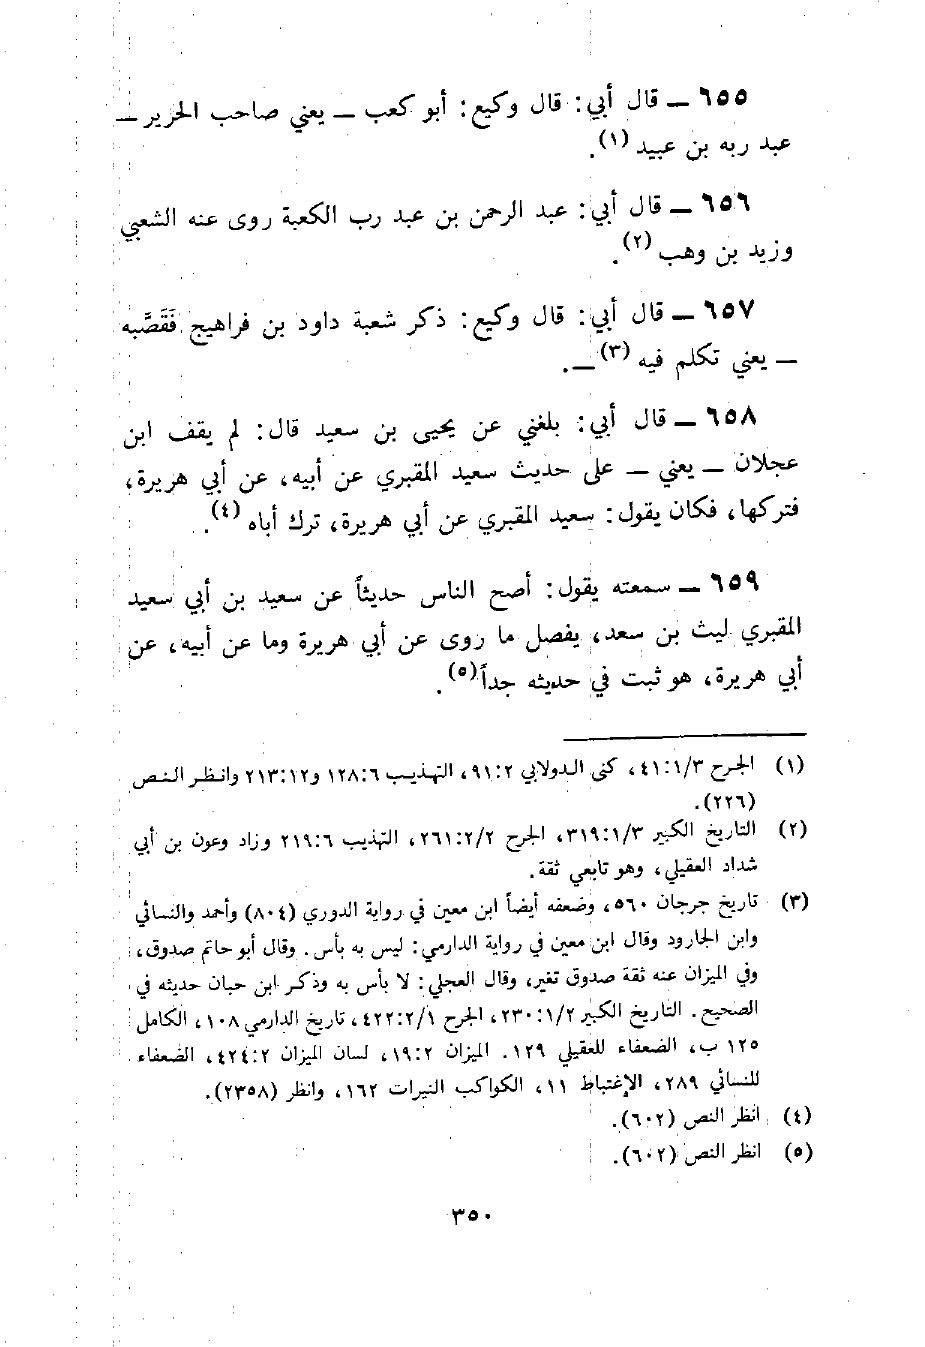 ٦٥٥ ــ قال أبي: قال وكيع: أبو كعب ــ يعني صاحب الحرير ــ
عبد ربه بن عبيد (١).
٦٥٦ ــ قال أبي: عبد الرحمن بن عبد رب الكعبة روى عنه الشعبي
وزيد بن وهب (٢).
٦٥٧ ــ قال أبي: قال وكيع: ذكر شعبة داود بن فراهيج فَقَصَّبه
ــ يعني تكلم فيه (٣) ــ.
٦٥٨ ــ قال أبي: بلغني عن يحيى بن سعيد قال: لم يقف ابن
عجلان ــ يعني ــ على حديث سعيد المقبري عن أبيه، عن أبي هريرة،
فتركها، فكان يقول: سعيد المقبري عن أبي هريرة، ترك أباه (٤).
٦٥٩ ــ سمعته يقول: أصح الناس حديثاً عن سعيد بن أبي سعيد
المقبري ليث بن سعد، يفصل ما روى عن أبي هريرة وما عن أبيه، عن
أبي هريرة، هو ثبت في حديثه جداً (٥).
(١) الجرح ٤١:١/٣، كنى الدولابي ٩١:٢، التهذيب ١٢٨:٦ و٢١٣:١٢ وانظر النص
(٢٢٦).
(٢) التاريخ الكبير ٣١٩:١/٣، الجرح ٢٦١:٢/٢، التهذيب ٢١٩:٦ وزاد وعون بن أبي
شداد العقيلي، وهو تابعي ثقة.
(٣) تاريخ جرجان ٥٦٠، وضعفه أيضاً ابن معين في رواية الدوري (٨٠٤) وأحمد والنسائي
وابن الجارود وقال ابن معين في رواية الدارمي: ليس به بأس. وقال أبو حاتم صدوق،
وفي الميزان عنه ثقة صدوق تغير، وقال العجلي: لا بأس به وذكر ابن حبان حديثه في
الصحيح. التاريخ الكبير ٢٣٠:١/٢، الجرح ٤٢٢:٢/١، تاريخ الدارمي ١٠٨، الكامل
١٢٥ ب، الضعفاء للعقيلي ١٢٩. الميزان ١٩:٢، لسان الميزان ٤٢٤:٢، الضعفاء
للنسائي ٢٨٩، الإغتباط ١١، الكواكب النيرات ١٦٢، وانظر (٢٣٥٨).
(٤) انظر النص (٦٠٢).
(٥) انظر النص (٦٠٢).
٣٥٠